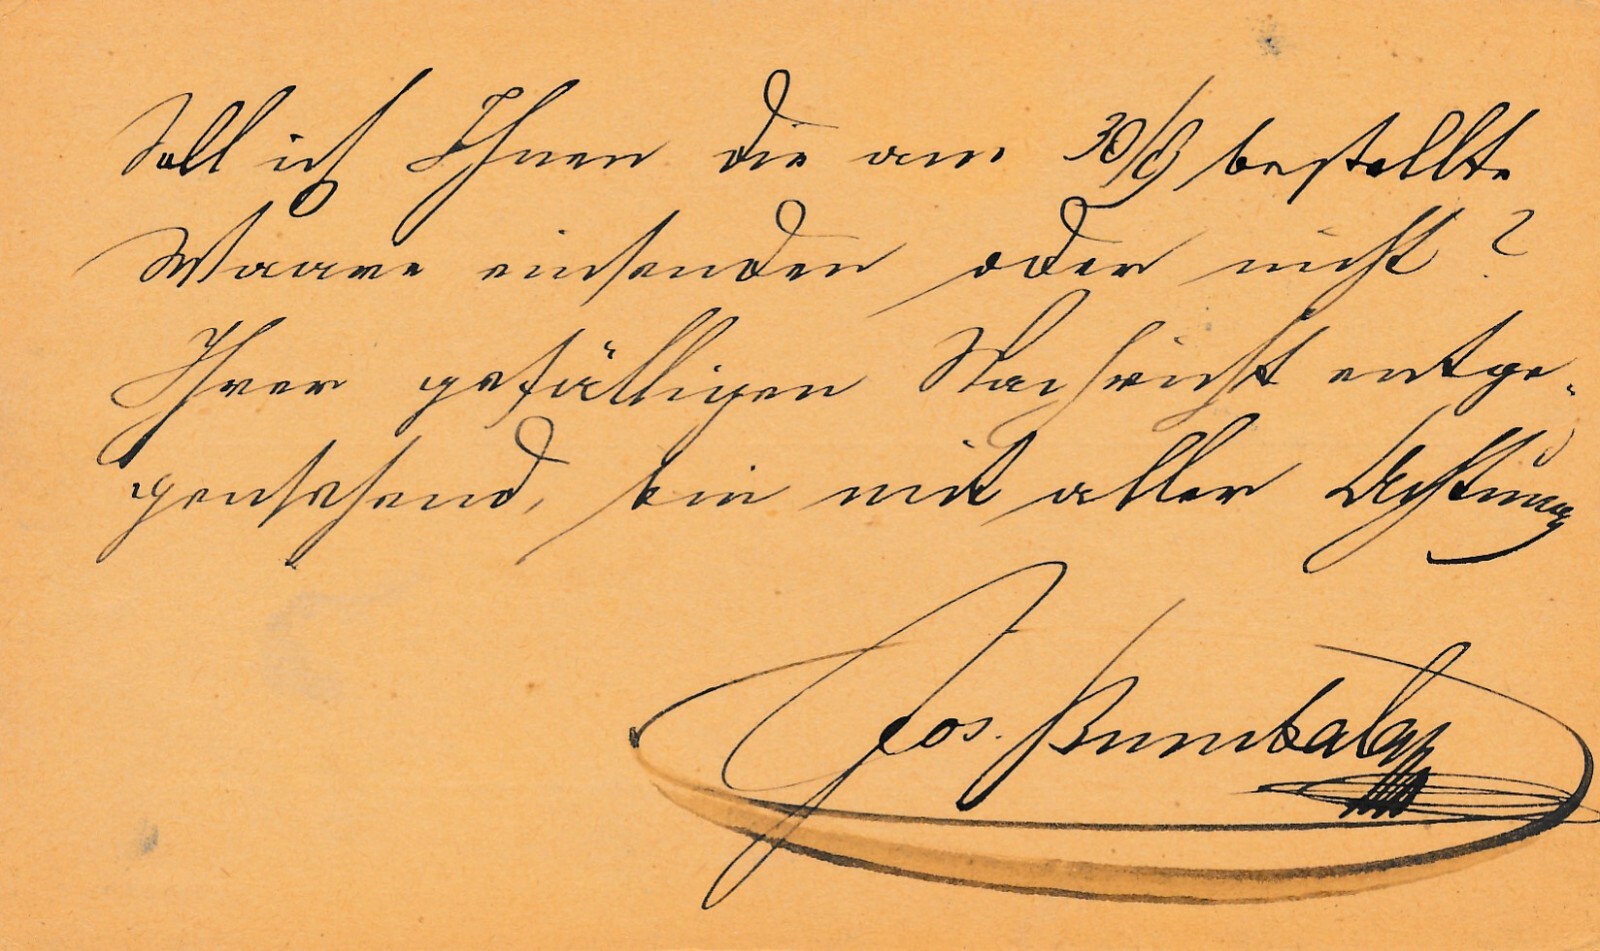 Soll ich Ihnen die am 30/8 bestellte
Waare einsenden oder nicht?
Ihrer gefälligen Nachricht entge-
gensehend, bin mit aller Achtung
Jos.